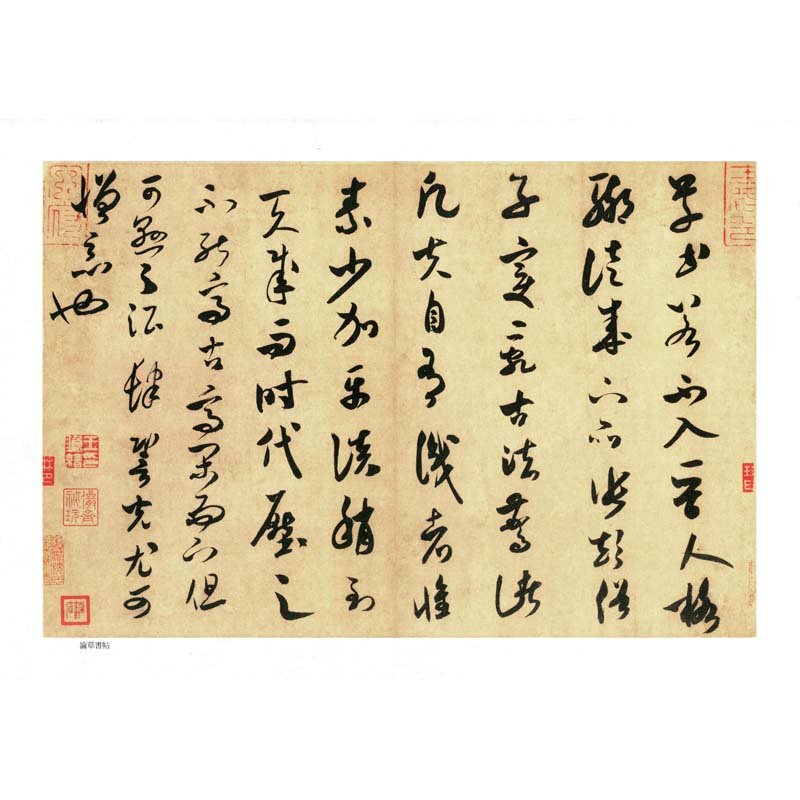 草書若不入晉人格
輒徒成下品張顛俗
子變亂古法驚諸
凡夫自有識者懷
素少加平淡稍到
天成而時代壓之
不能高古高閑而下但
可懸之酒肆䛒光尤可
憎惡也
論草書帖